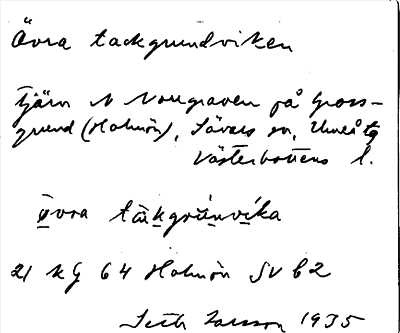 Övra tackgrundviken
Tjärn N Norrgraven på Gross-
grund (Holmön), Sävars sn, Umeå tg
Västerbottens l.
övra takgrúnvíka
21 K g 64 Holmön SV b2
Seth Larsson 1935